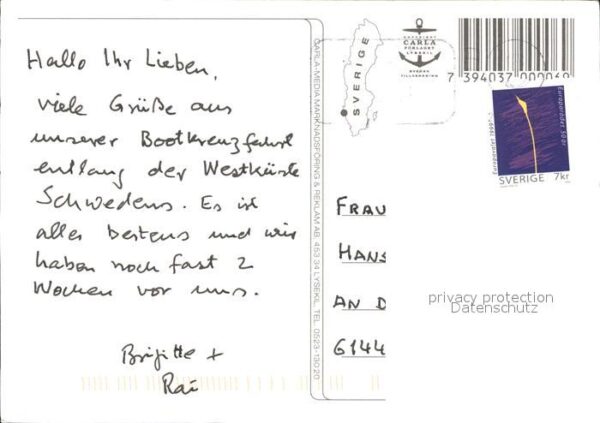 Hallo Ihr Lieben,
viele Grüße aus
unserer Bootkreuzfahrt
entlang der Westküste
Schwedens. Es ist
alles bestens und wir
haben noch fast 2
Wochen vor uns.
Brigitte +
Rai
CARLA-MEDIA MARKNADSFÖRING & REKLAM AB, 453 34 LYSEKIL, TEL. 0523-130 20
SVERIGE
CARLA
FÖRLAGET
LYSEKIL
7 394037 000069
Europarådet 50 år
SVERIGE 7kr
FRAU
HANS
AN D
6144
privacy protection
Datenschutz